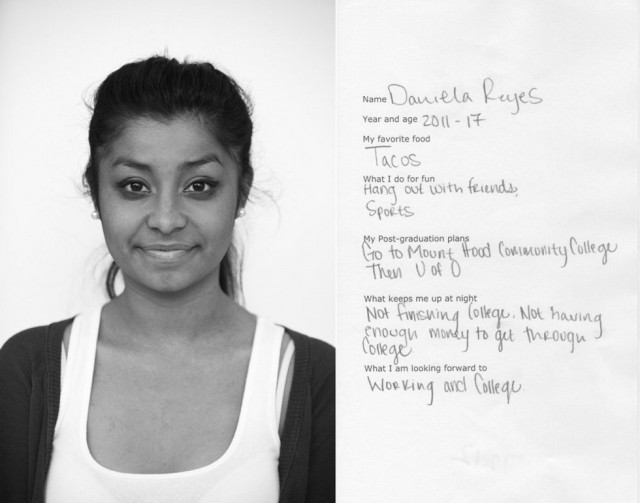 Name Daniela Reyes
Year and age 2011 - 17
My favorite food
Tacos
What I do for fun
Hang out with friends,
Sports
My Post-graduation plans
Go to Mount Hood Community College
Then U of O
What keeps me up at night
Not finishing College. Not having
enough money to get through
College
What I am looking forward to
Working and College.